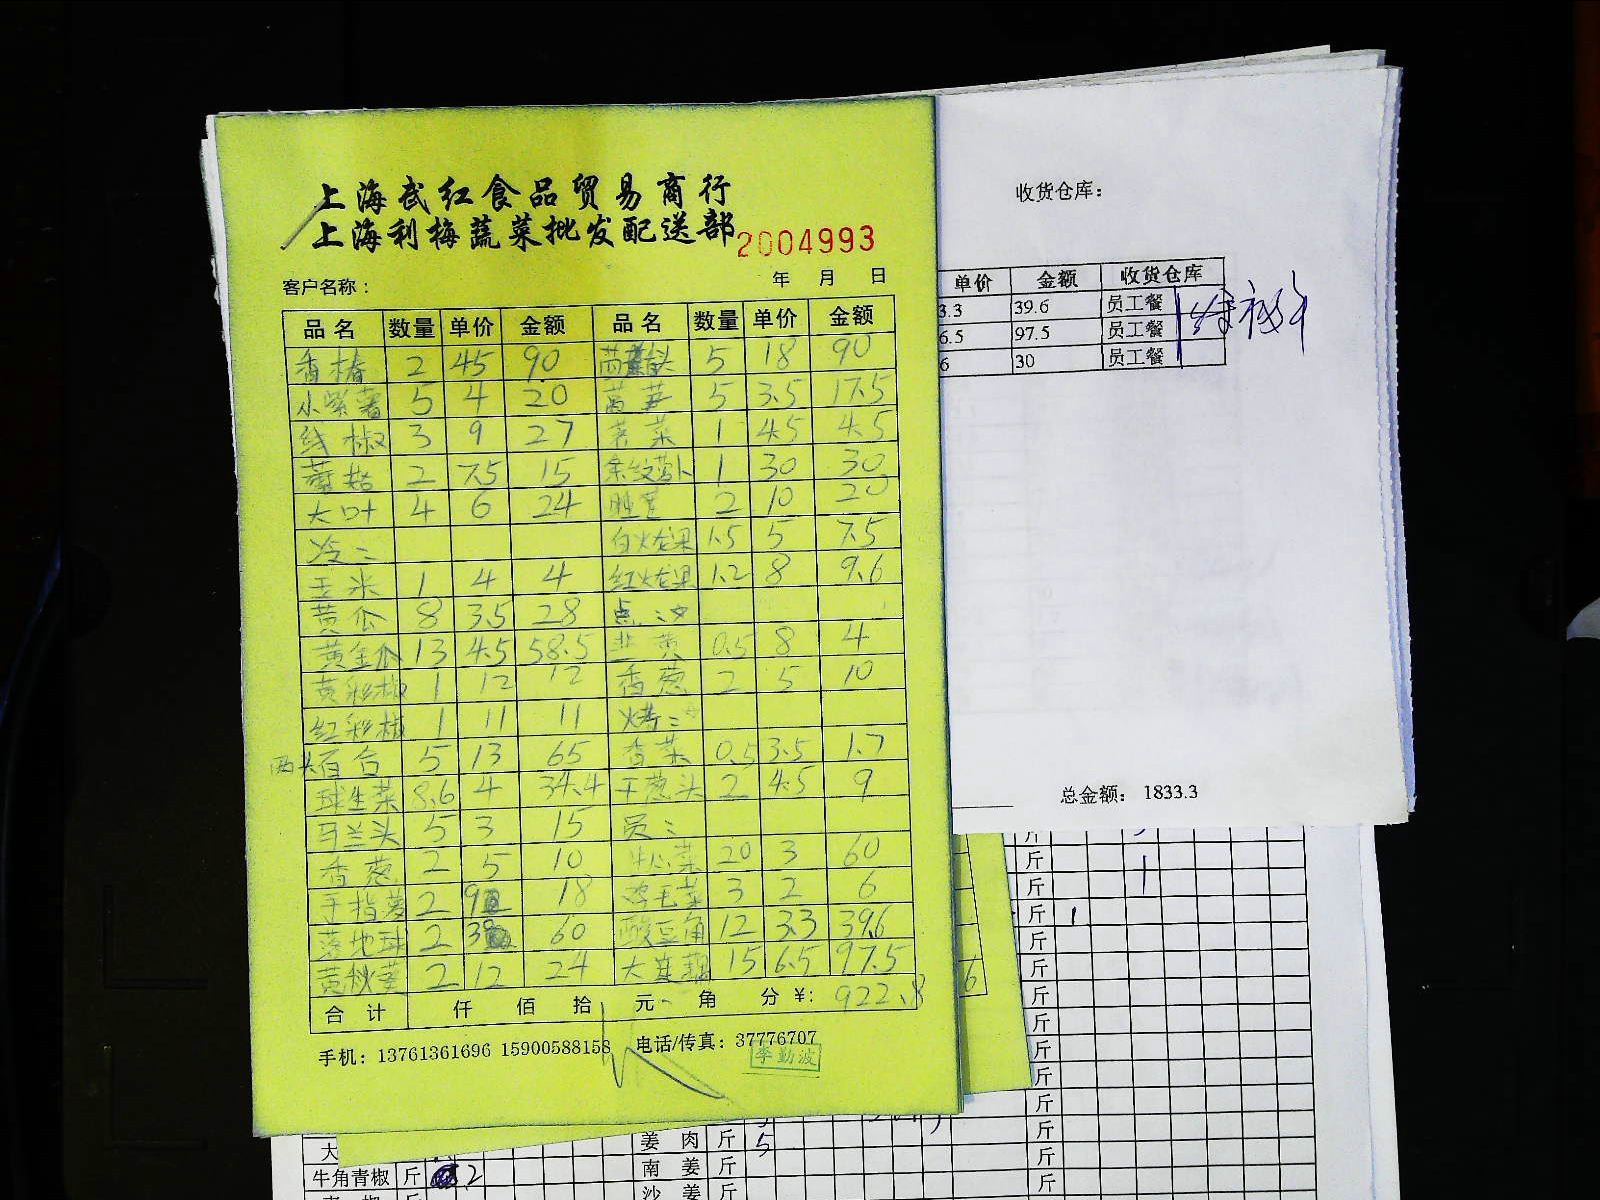 上海武红食品贸易商行
上海利梅蔬菜批发配送部
2004993
客户名称： 年 月 日
品名 数量 单价 金额 品名 数量 单价 金额
香椿 2 45 90 5 18 90
小紫薯 5 4 20 莴笋 5 3.5 17.5
线椒 3 9 27 荠菜 1 4.5 4.5
蘑菇 2 7.5 15 1 30 30
大叶 4 6 24 2 10 20
冷二 白火龙果 1.5 5 7.5
玉米 1 4 4 红火龙果 1.2 8 9.6
黄瓜 8 3.5 28 点二
黄金瓜 13 4.5 58.5 韭黄 0.5 8 4
黄彩椒 1 12 12 香葱 2 5 10
红彩椒 1 11 11 烤二
两头百合 5 13 65 香菜 0.5 3.5 1.7
球生菜 8.6 4 34.4 干葱头 2 4.5 9
马兰头 5 3 15 员二
香葱 2 5 10 牛心菜 20 3 60
手指萝 2 9 18 鸡毛菜 3 2 6
落地球 2 30 60 酸豆角 12 3.3 39.6
黄秋葵 2 12 24 大莲藕 15 6.5 97.5
合计 仟 佰 拾 元 角 分 ¥: 922.8
手机：13761361696 15900588158 电话/传真：37776707
李勤波
收货仓库：
单价 金额 收货仓库
3.3 39.6 员工餐
6.5 97.5 员工餐
6 30 员工餐
总金额： 1833.3
斤
斤 1
斤
斤 1
斤
斤
斤
斤
斤
斤
斤
斤
斤
斤
6
大
姜肉 斤 5
牛角青椒 斤 2
南姜 斤
沙姜 斤